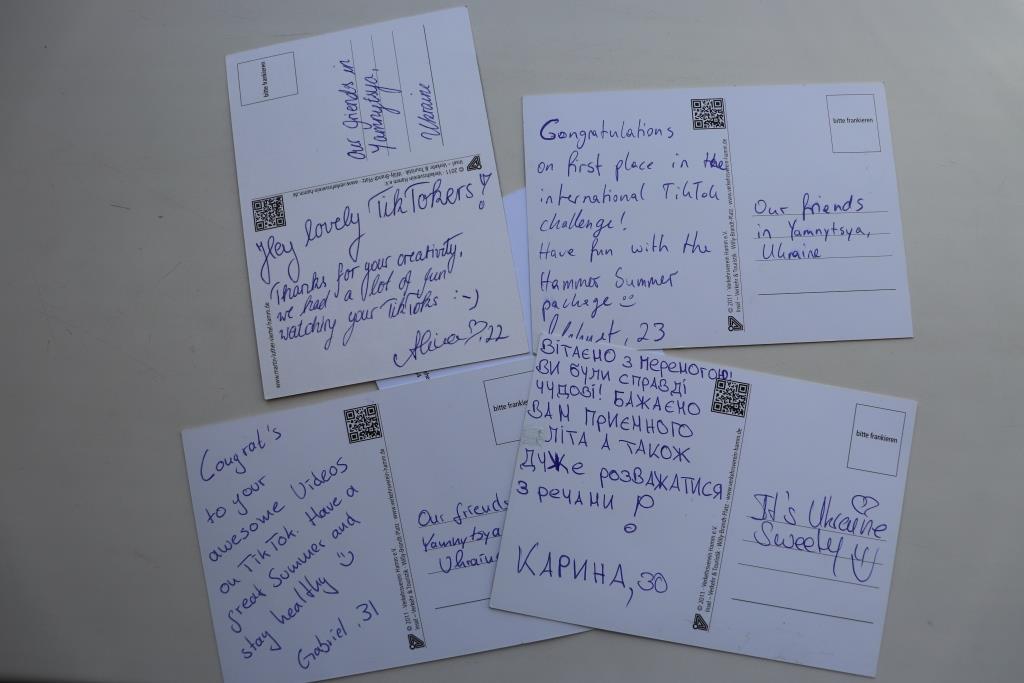 bitte frankieren
Our friends in
Yamnytsya,
Ukraine
© 2011 · Verkehrsverein Hamm e.V.
Insel – Verkehr & Touristik · Willy-Brandt-Platz · www.verkehrsverein-hamm.de
Hey lovely TikTokers!
Thanks for your creativity,
we had a lot of fun
watching your TikToks :-)
Alina ♡, 22
www.martin-luther-viertel-hamm.de
Congratulations
on first place in the
international TikTok
challenge!
Have fun with the
Hammer Summer
package
, 23
© 2011 · Verkehrsverein Hamm e.V.
Insel – Verkehr & Touristik · Willy-Brandt-Platz · www.verkehrsverein-hamm.de
bitte frankieren
Our friends
in Yamnytsya,
Ukraine
Congrat's
to your
awesome Videos
on TikTok. Have a
great Summer and
stay healthy
Gabriel, 31
© 2011 · Verkehrsverein Hamm e.V.
Insel – Verkehr & Touristik · Willy-Brandt-Platz · www.verkehrsverein-hamm.de
bitte frankieren
Our friends
Yamnytsya
Ukraine
ВІТАЄМО З ПЕРЕМОГОЮ!
ВИ БУЛИ СПРАВДІ
ЧУДОВІ! БАЖАЄМО
ВАМ ПРИЄМНОГО
ЛІТА А ТАКОЖ
ДУЖЕ РОЗВАЖАТИСЯ
З РЕЧАМИ
КАРИНА, 30
© 2011 · Verkehrsverein Hamm e.V.
Insel – Verkehr & Touristik · Willy-Brandt-Platz · www.verkehrsverein-hamm.de
bitte frankieren
It's Ukraine
Sweety